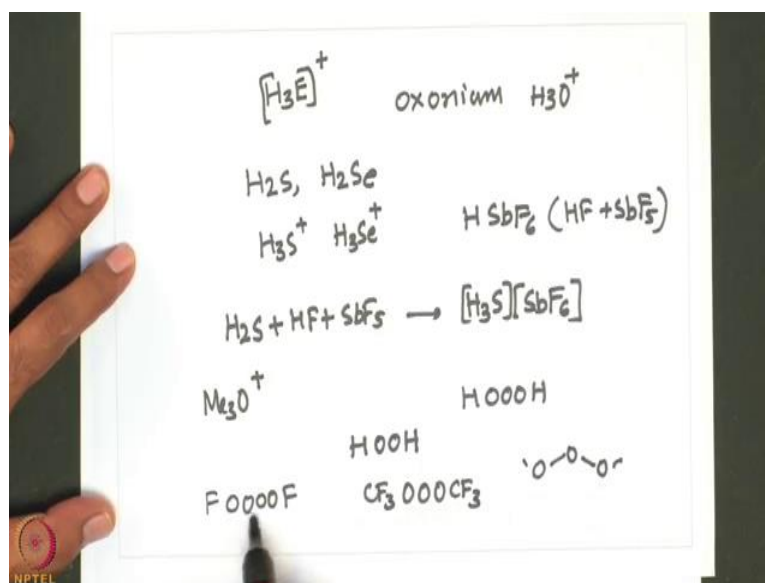 [H3E]+ oxonium H3O+
H2S, H2Se
H3S+ H3Se+ HSbF6 (HF + SbF5)
H2S + HF + SbF5 → [H3S][SbF6]
Me3O+ HOOOH
HOOH
FOOOOF CF3OOOCF3 O-O-O
NPTEL